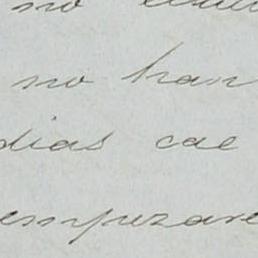 no
no han
dias cae
empezare